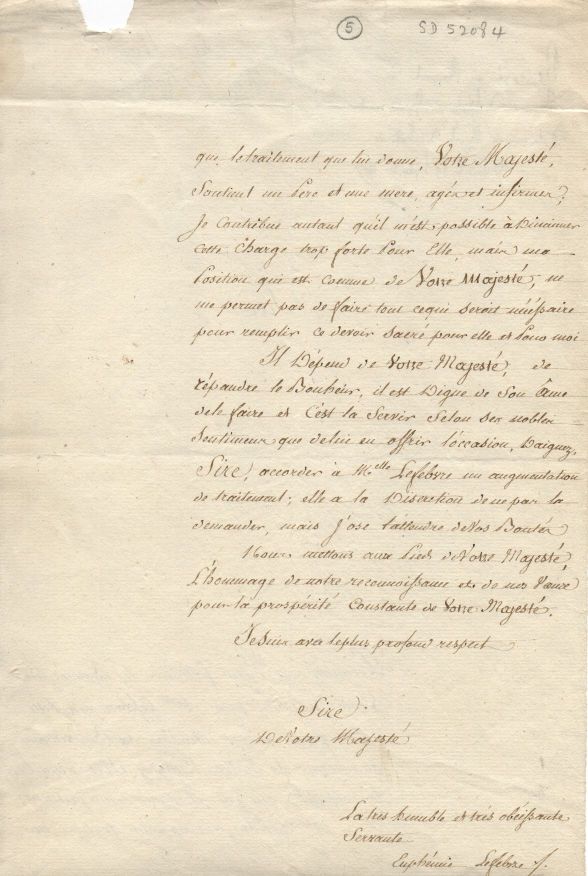 5 SD 52084
que le traitement que lui donne, Votre Majesté,
Soutient un Père et une mere, agés et infirmes;
Je Contribue autant qu'il m'est possible à Diminuer
cette Charge trop forte Pour Elle, mais ma
Position qui est connue de Votre Majesté, ne
me permet pas de faire tout cequi seroit nécéssaire
pour remplir ce devoir Sacré pour elle et Pour moi
Il Dépend de Votre Majesté, de
répandre le Bonheur, il est Digne de Son âme
dele faire et C'est la Servir Selon Ses nobles
Sentimens que delui en offrir l'occasion, Daignez,
Sire, accorder à Melle Lefebvre un augmentation
de traitement; elle a la Discretion de ne pas la
demander, mais J'ose l'attendre de Vos Bontés
Nous mettons aux Pieds de Votre Majesté,
L'hommage de notre reconnoissance et de nos Vœux
pour la prospérité Constante de Votre Majesté.
Je Suis avec le plus profond respect
Sire
De Votre Majesté
La très humble et très obéissante
Servante
Euphémie Lefebvre